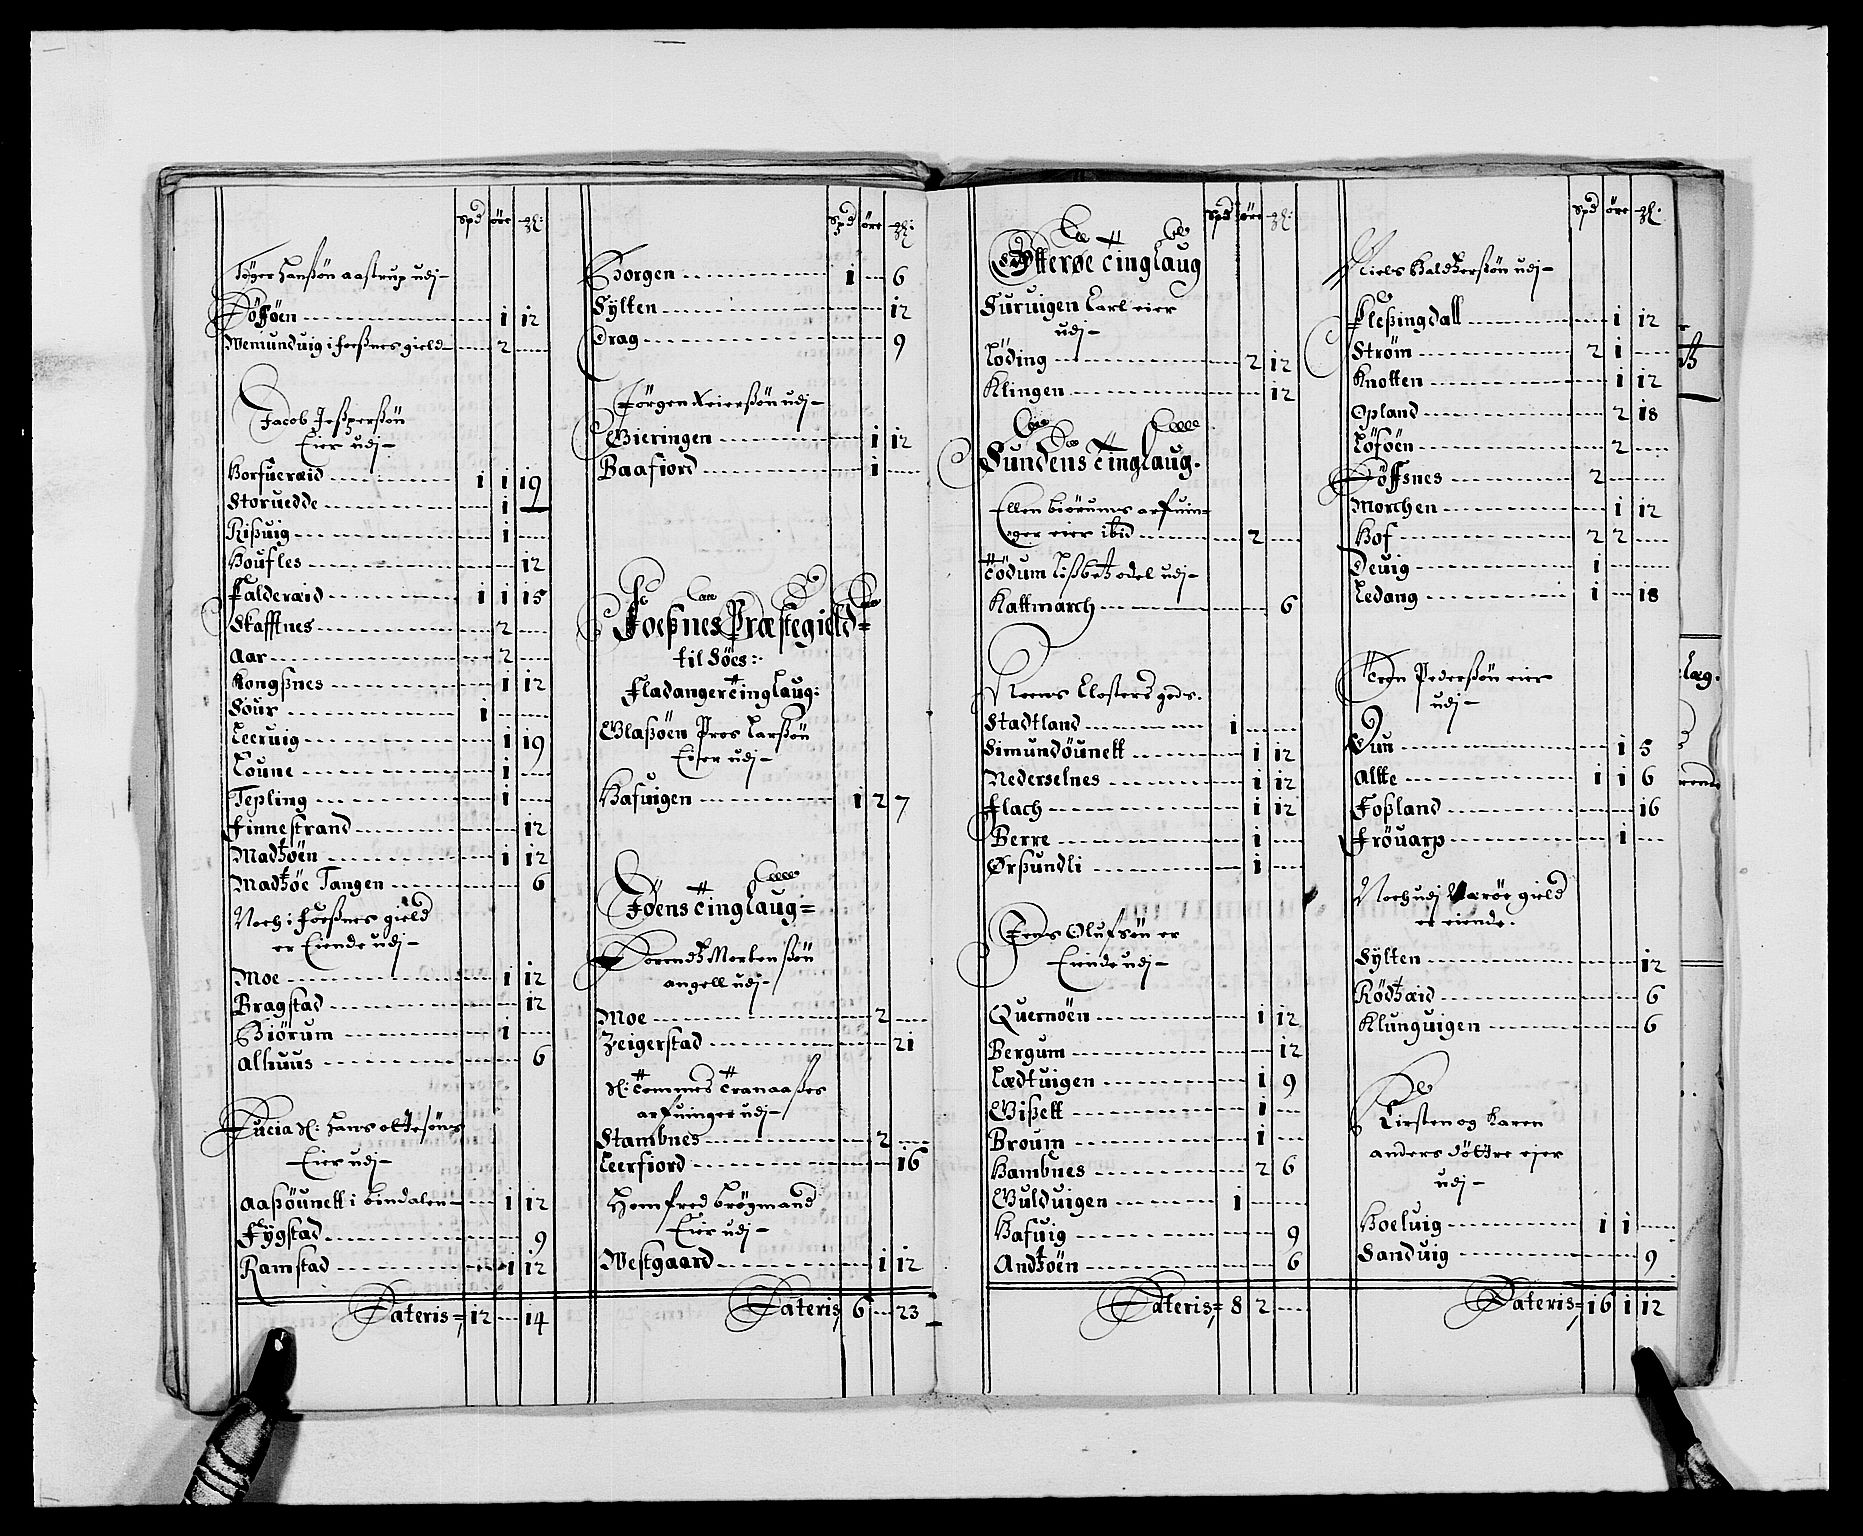 spd øre
Jøger Hanßøn Aastrup udj
Döfföen 1 12
Wemunduig i foeßnes gield 2
Jacob Jeßperßön
Eier udj
Horfueræid 1 1 19
Storuedde 1
Rißuig 1
Houfles 12
Falderæid 1 1 15
Skafftnes 2
Aar 2
Kongßnes 1 12
Sour 1
Leeruig 1 19
Loune 1
Tepling 1
Finnestrand 12
Madtzöen 1 12
Madtzöe Tangen 6
Noch i foeßnes gield
er Eiende udj
Moe 1 12
Bragstad 12
Biörum 1
Alhuus 6
Lucia Hans ottesöns
Eier udj
Aaßöunett i bindalen 1 12
Fygstad 9
Ramstad 1 12
Lateris 12 14
spd øre
Borgen 1 6
Sylten 12
Drag 9
Jörgen Reierßön udj
Bieringen 1 12
Baafiord 1
Foeßnes Præstegield
til Söes:
Fladanger Tinglaug:
Blaßöen Pros Larßön
Eier udj
Hafuigen 1 2 7
Föens Tinglaug
Lorendtz Mortenßön
angell udj
Moe 2
Zeigerstad 21
Tommes Tranaaßes
arfuinger udj
Stambnes 2
Leerfiord 16
Homfred brögmand
Eier udj
Westgaard 1 12
Lateris 6 23
spd øre
Otterøe Tinglaug
Suruigen Carl eier
udj
Löding 2 12
Klingen 12
Sundens Tinglaug.
Ellen biörums arfuin
ger eier ibid 2
Tödum Lißbetz odel udj
Kattmarch 6
Reens Closters gods.
Stadtland 1
Simundöunett 1 12
Nederselnes 1 12
Flach 1 12
Berre 1
Ørßundli 1
Jens Olufsøn er
Eiende udj
Quernöen 1 12
Bergum 12
Lædtuigen 1 9
Bißett 1
Broum 1
Hambnes 2 6
Gulduigen 1
Hafuig 9
Andtzöen 6
Lateris 8 2
spd øre
Niels Baldtzerßön udj
Fleßingdall 1 12
Ström 2 1
Knotten 1 12
Opland 2 18
Löföen 2
Döffsnes 2
Morchen 1 12
Hof 2 2
Deuig 1
Ledang 1 18
Tron Pederßön eier
udj
Dun 1 5
Altte 1 1 6
Foßland 16
Fröuarp 1
Noch udj Nærøe gield
er eiende.
Sylten 12
Rödtzæid 6
Klunguigen 6
Kirsten og Karen
anders döttre ejer
udj
Hoeluig 1 1
Sanduig 9
Lateris 16 1 12